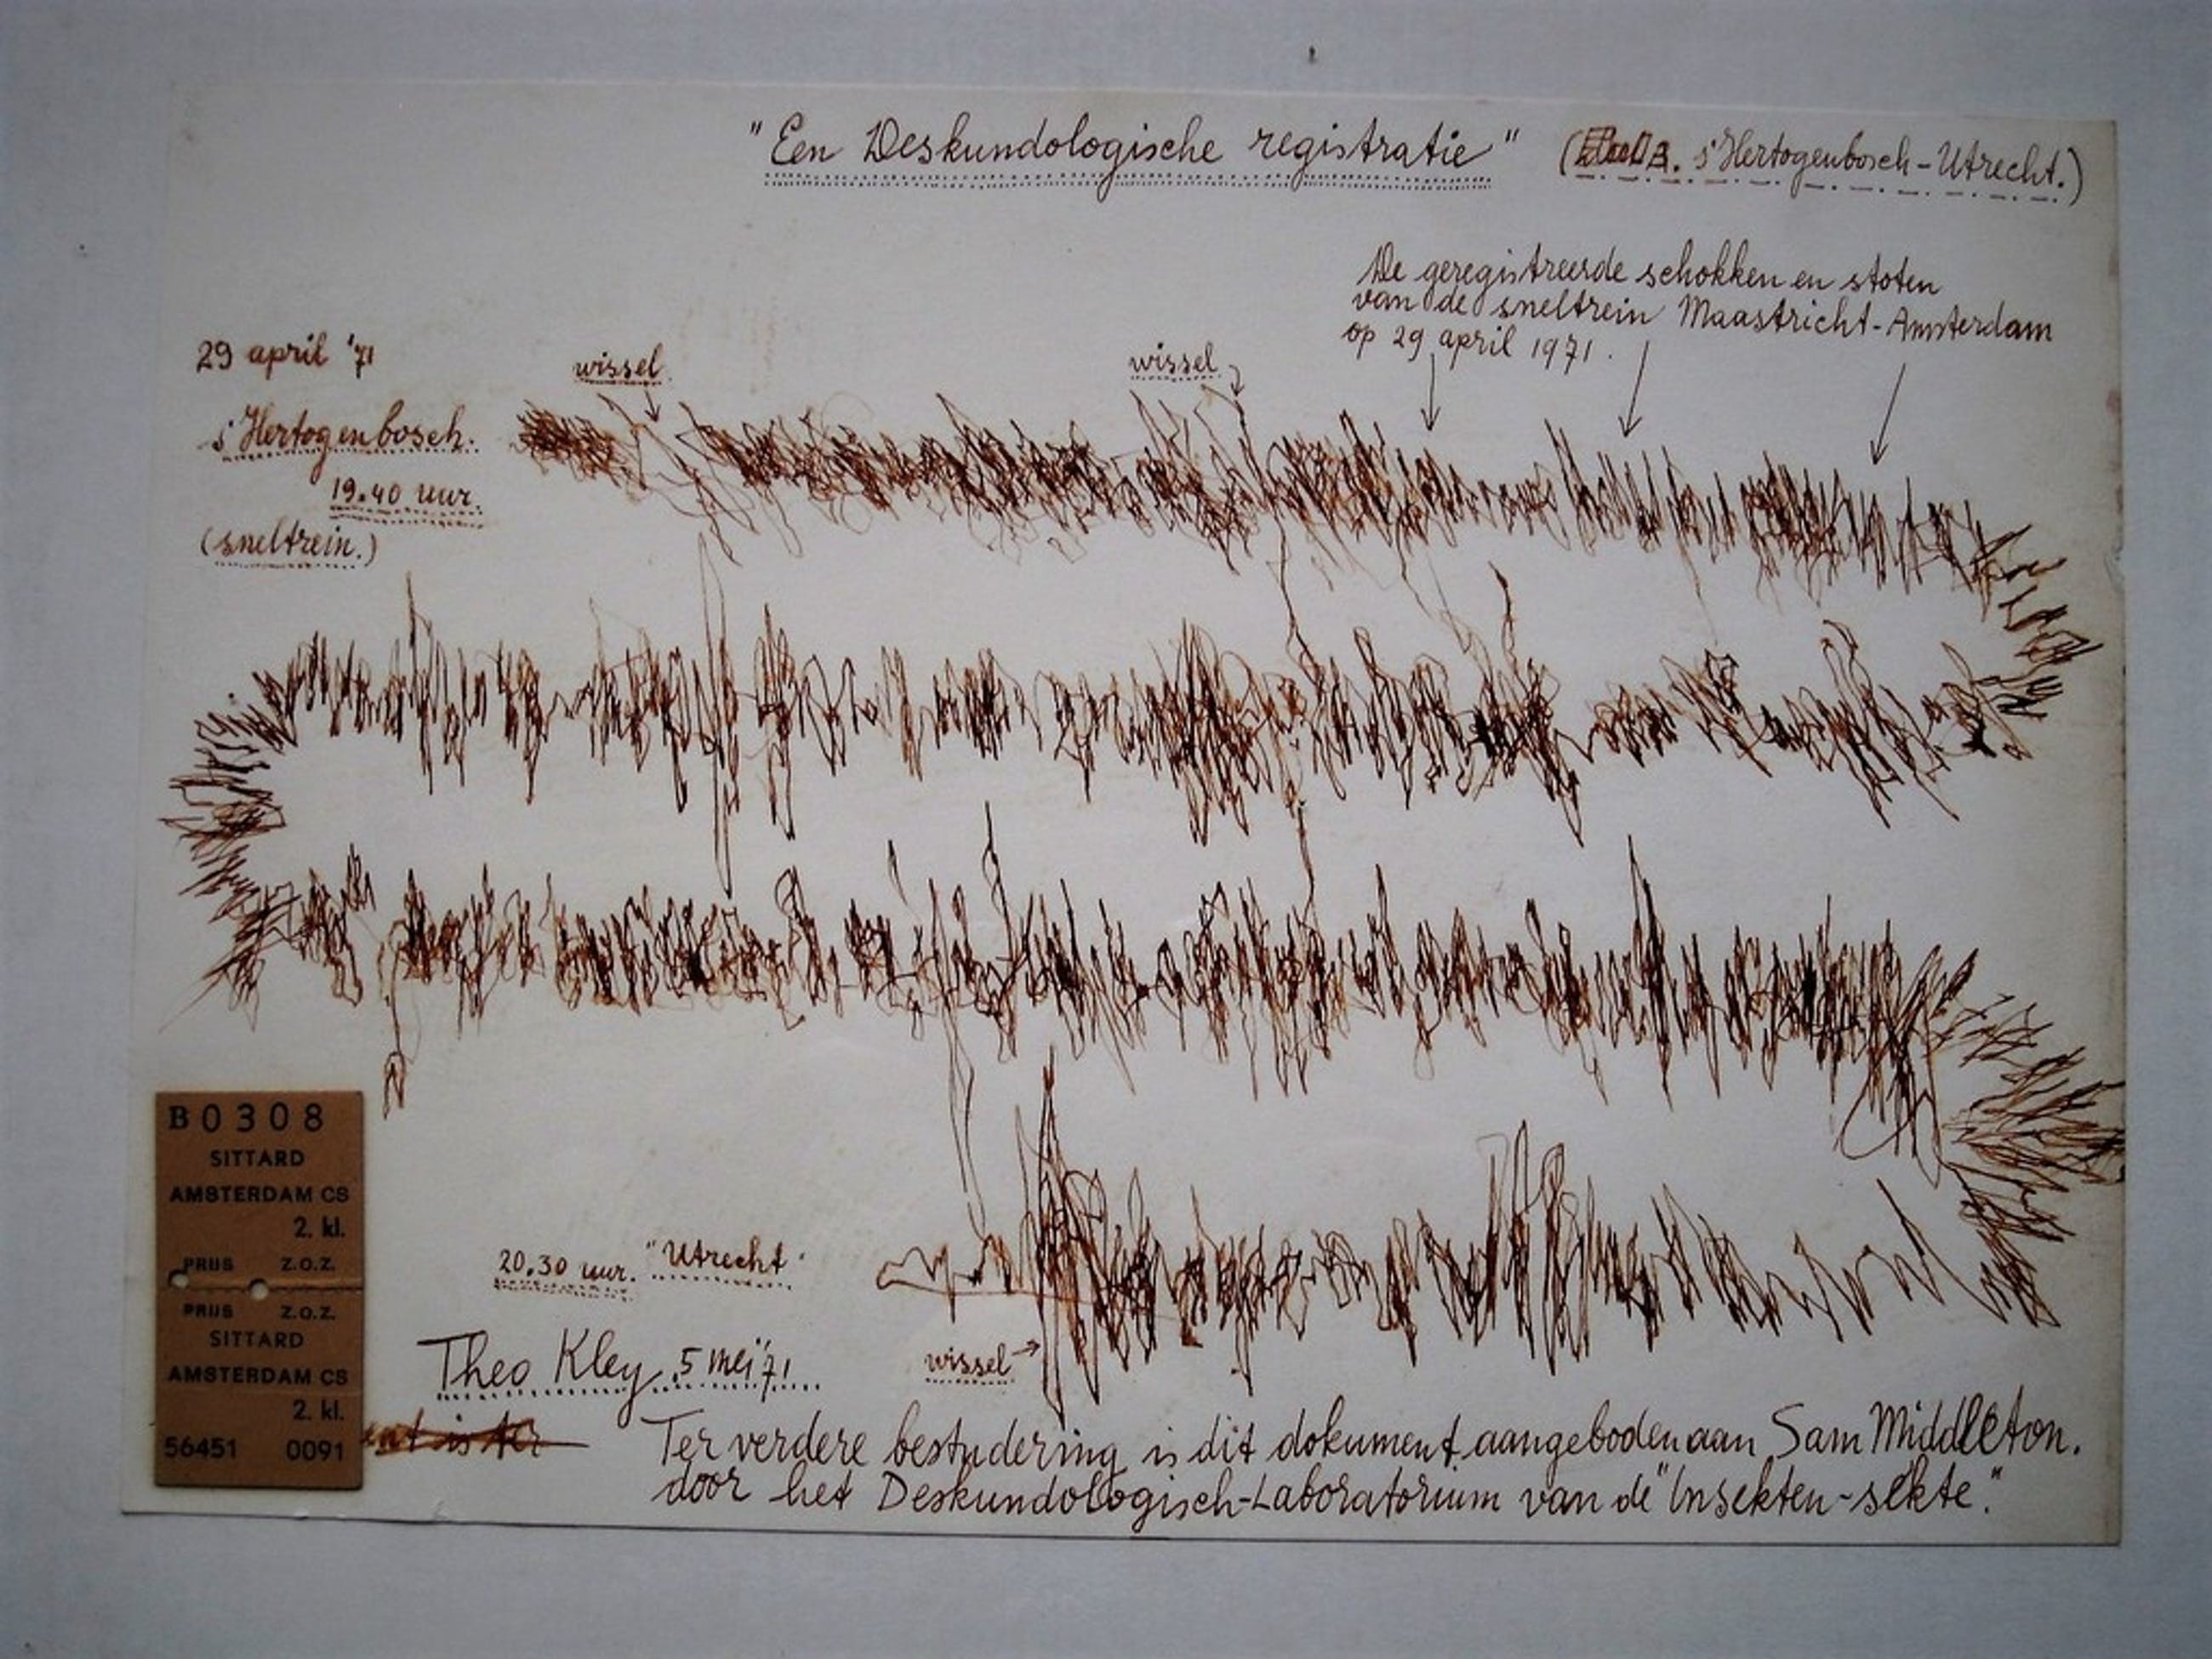 "Een Deskundologische registratie"
(s'Hertogenbosch-Utrecht.)
De geregistreerde schokken en stoten
van de sneltrein Maastricht-Amsterdam
op 29 april 1971.
29 april '71
wissel
wissel
s'Hertogenbosch.
19.40 uur.
(sneltrein.)
B0308
SITTARD
AMSTERDAM CS
2. kl.
PRIJS Z.O.Z.
PRIJS Z.O.Z.
SITTARD
AMSTERDAM CS
2. kl.
56451 0091
20.30 uur. "Utrecht"
wissel
Theo Kley. 5 mei '71
is ter
Ter verdere bestudering is dit dokument aangeboden aan Sam Middleton.
door het Deskundologisch-Laboratorium van de "Insekten-sekte."